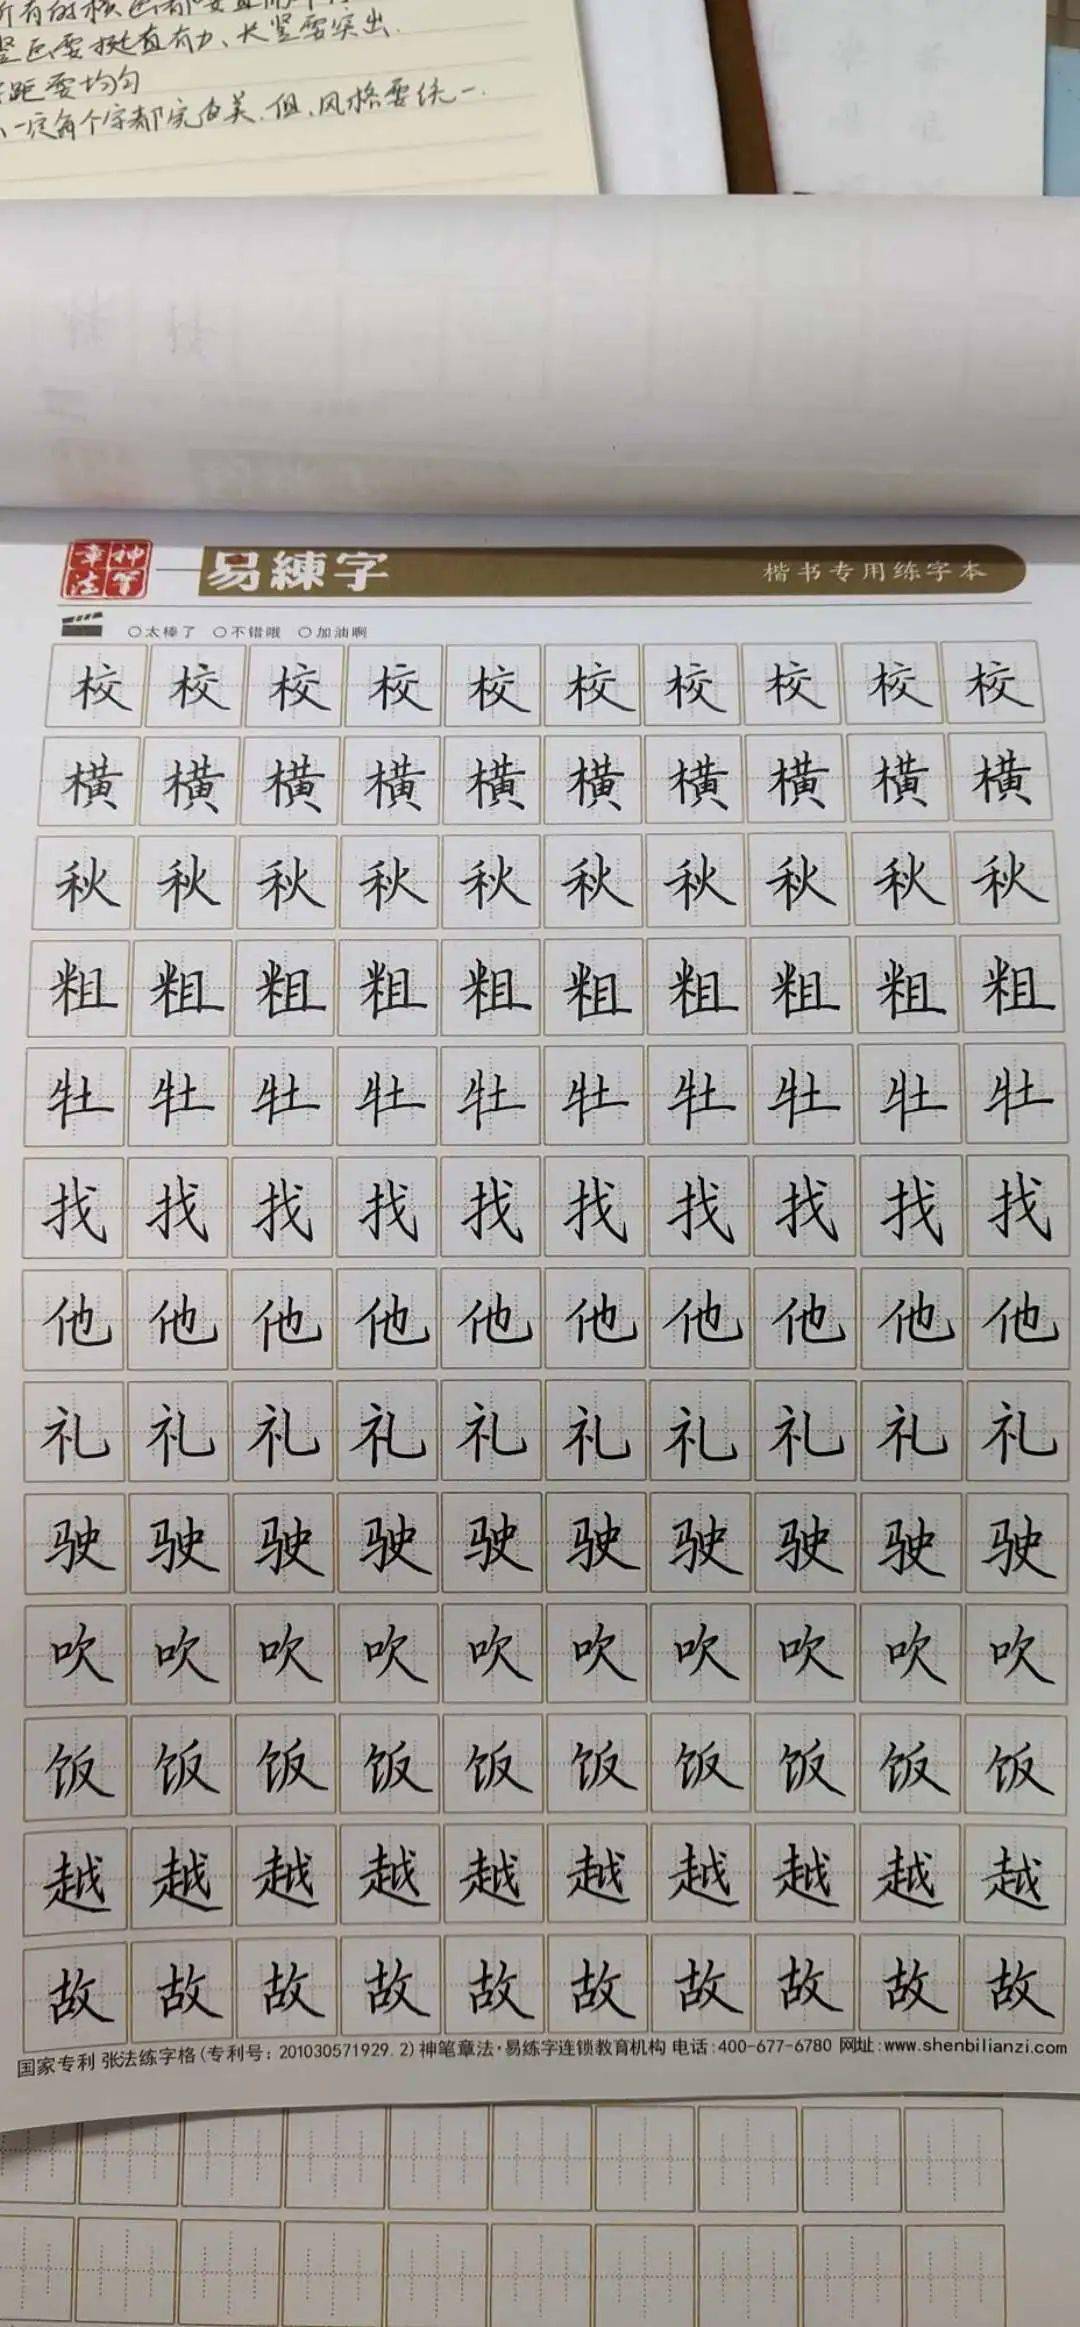 竖画要挺直有力、长竖要突出.
距要均匀
一定每个字都完美.但、风格要统一.
神笔章法
易練字
楷书专用练字本
○太棒了 ○不错哦 ○加油啊
校校校校校校校校校校
横横横横横横横横横横
秋秋秋秋秋秋秋秋秋秋
粗粗粗粗粗粗粗粗粗粗
牡牡牡牡牡牡牡牡牡牡
找找找找找找找找找找
他他他他他他他他他他
礼礼礼礼礼礼礼礼礼礼
驶驶驶驶驶驶驶驶驶驶
吹吹吹吹吹吹吹吹吹吹
饭饭饭饭饭饭饭饭饭饭
越越越越越越越越越越
故故故故故故故故故故
国家专利 张法练字格(专利号: 201030571929.2)神笔章法·易练字连锁教育机构 电话:400-677-6780 网址:www.shenbilianzi.com